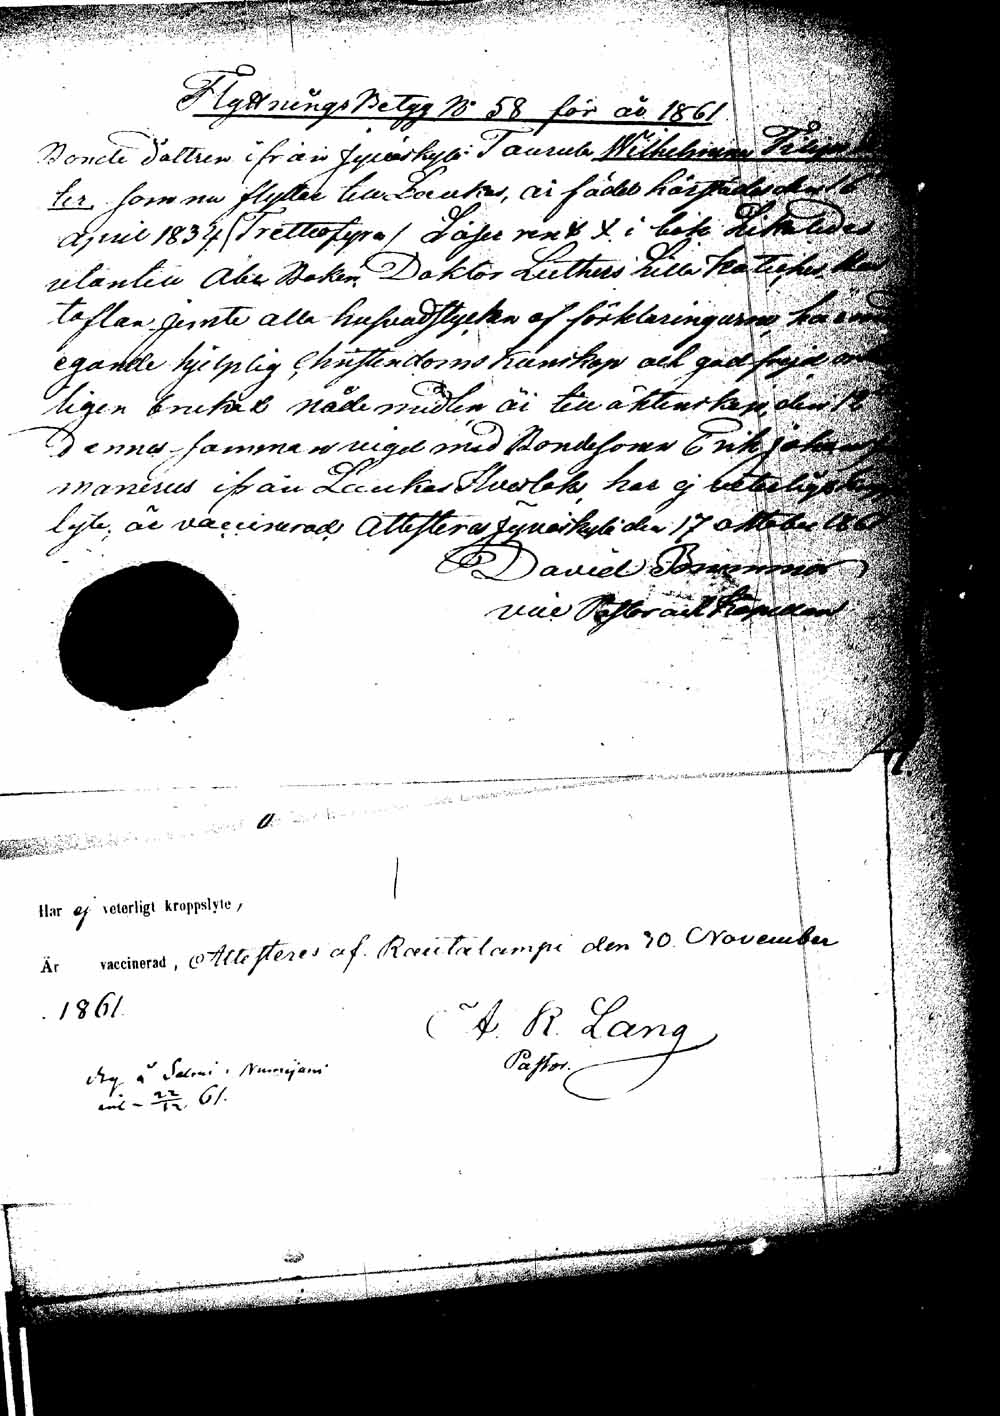 Flyttnings Betyg No 58 för år 1861
Bonde dottren ifrån Jyväskylä Taurula Wilhelmina
ter, som nu flyttar till Laukas, är född härstädes den 16
April 1834 (Trettiofyra) Läser rent x i bok Likaledes
utantill Abc Boken, Doktor Luthers Lilla Kateches,
taflan jemte alla hufvudstycken af förklaringarna
egande hjelplig Christendoms kunskap och god frejd
ligen brukat nådemedlen är till äktenskap, den 12
Dennes sammanvigd med Bondesonen Erik Johan
manerus ifrån Laukas har ej veterligt
lyte, är vaccinerad, Attesteras Jyväskylä den 17 oktober 1861
David
vice Pastor och Kapellan
Har ej veterligt kroppslyte,
Är vaccinerad, Attesteres af. Rautalampi den 30. November
1861.
A. R. Lang
Pastor.
å Selmi
22/12 61.